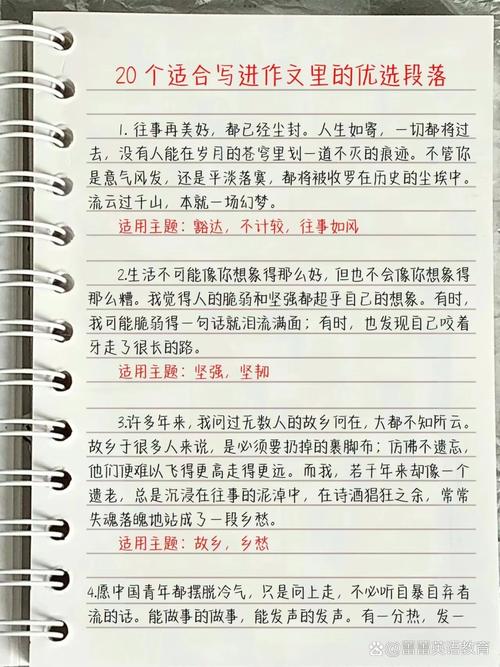 20个适合写进作文里的优选段落
1. 往事再美好，都已经尘封。人生如寄，一切都将过
去，没有人能在岁月的苍穹里划一道不灭的痕迹。不管你
是意气风发，还是平淡落寞，都将被收罗在历史的尘埃中。
流云过千山，本就一场幻梦。
适用主题：豁达，不计较，往事如风
2.生活不可能像你想象得那么好，但也不会像你想象得
那么糟。我觉得人的脆弱和坚强都超乎自己的想象。有时，
我可能脆弱得一句话就泪流满面；有时，也发现自己咬着
牙走了很长的路。
适用主题：坚强，坚韧
3.许多年来，我问过无数人的故乡何在，大都不知所云。
故乡于很多人来说，是必须要扔掉的裹脚布；仿佛不遗忘，
他们便难以飞得更高走得更远。而我，若干年来却像一个
遗老，总是沉浸在往事的泥淖中，在诗酒猖狂之余，常常
失魂落魄地站成了一段乡愁。
适用主题：故乡，乡愁
4.愿中国青年都摆脱冷气，只是向上走，不必听自暴自弃者
流的话。能做事的做事，能发声的发声。有一分热，发一
雷雷英语教育